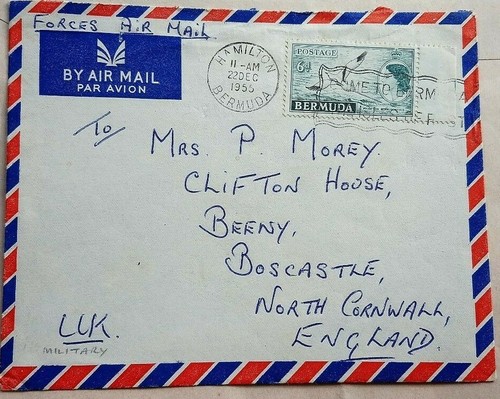 FORCES AIR MAIL
BY AIR MAIL
PAR AVION
HAMILTON
11-AM
22 DEC
1955
BERMUDA
POSTAGE
6d
BERMUDA
To
MRS. P. MOREY.
CLIFTON HOUSE,
BEENY,
BOSCASTLE,
NORTH CORNWALL,
ENGLAND.
UK.
MILITARY